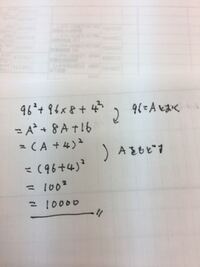 96²+96×8+4² 96=Aとおく
=A²+8A+16
=(A+4)² Aをもどす
=(96+4)²
=100²
=10000